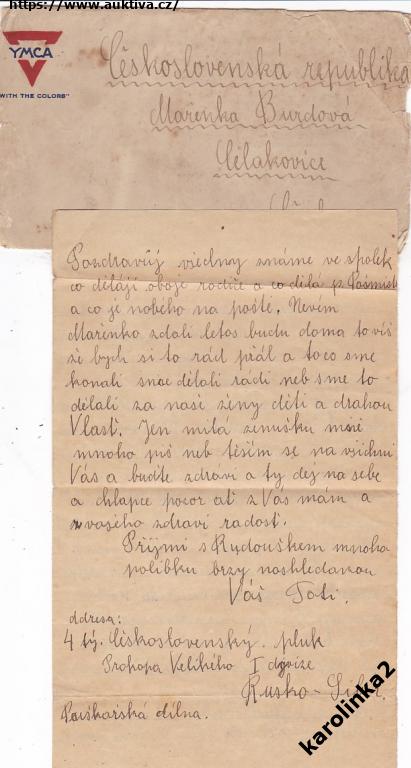 https://www.auktiva.cz/
YMCA
"WITH THE COLORS"
Československá republika
Mařenka Burdová
Čelakovice
Pozdravůj všechny známe ve spolek
co dělájí oboje rodiče a co dělá p.
a co je nobého na poště. Nevím
Mařenko zdali letos budu doma to víš
že bych si to rád přál a to co sme
konali snad dělali rádi neb sme to
dělali za naši ženy děti a drahou
Vlasť. Jen milá ženuško mně
mnoho piš neb těším se na všichni
Vás a buďte zdrávi a ty dej na sebe
a chlapce pozor ať z Vás mám a
z vašého zdraví radosť.
Přijmi s Rudouškem mnoho
polibku brzy nashledanou
Váš Toti.
Adresa:
4 tý. Československý. pluk
Prokopa Velikého I divize
Rusko-
Puškařská dílna.
karolinka2